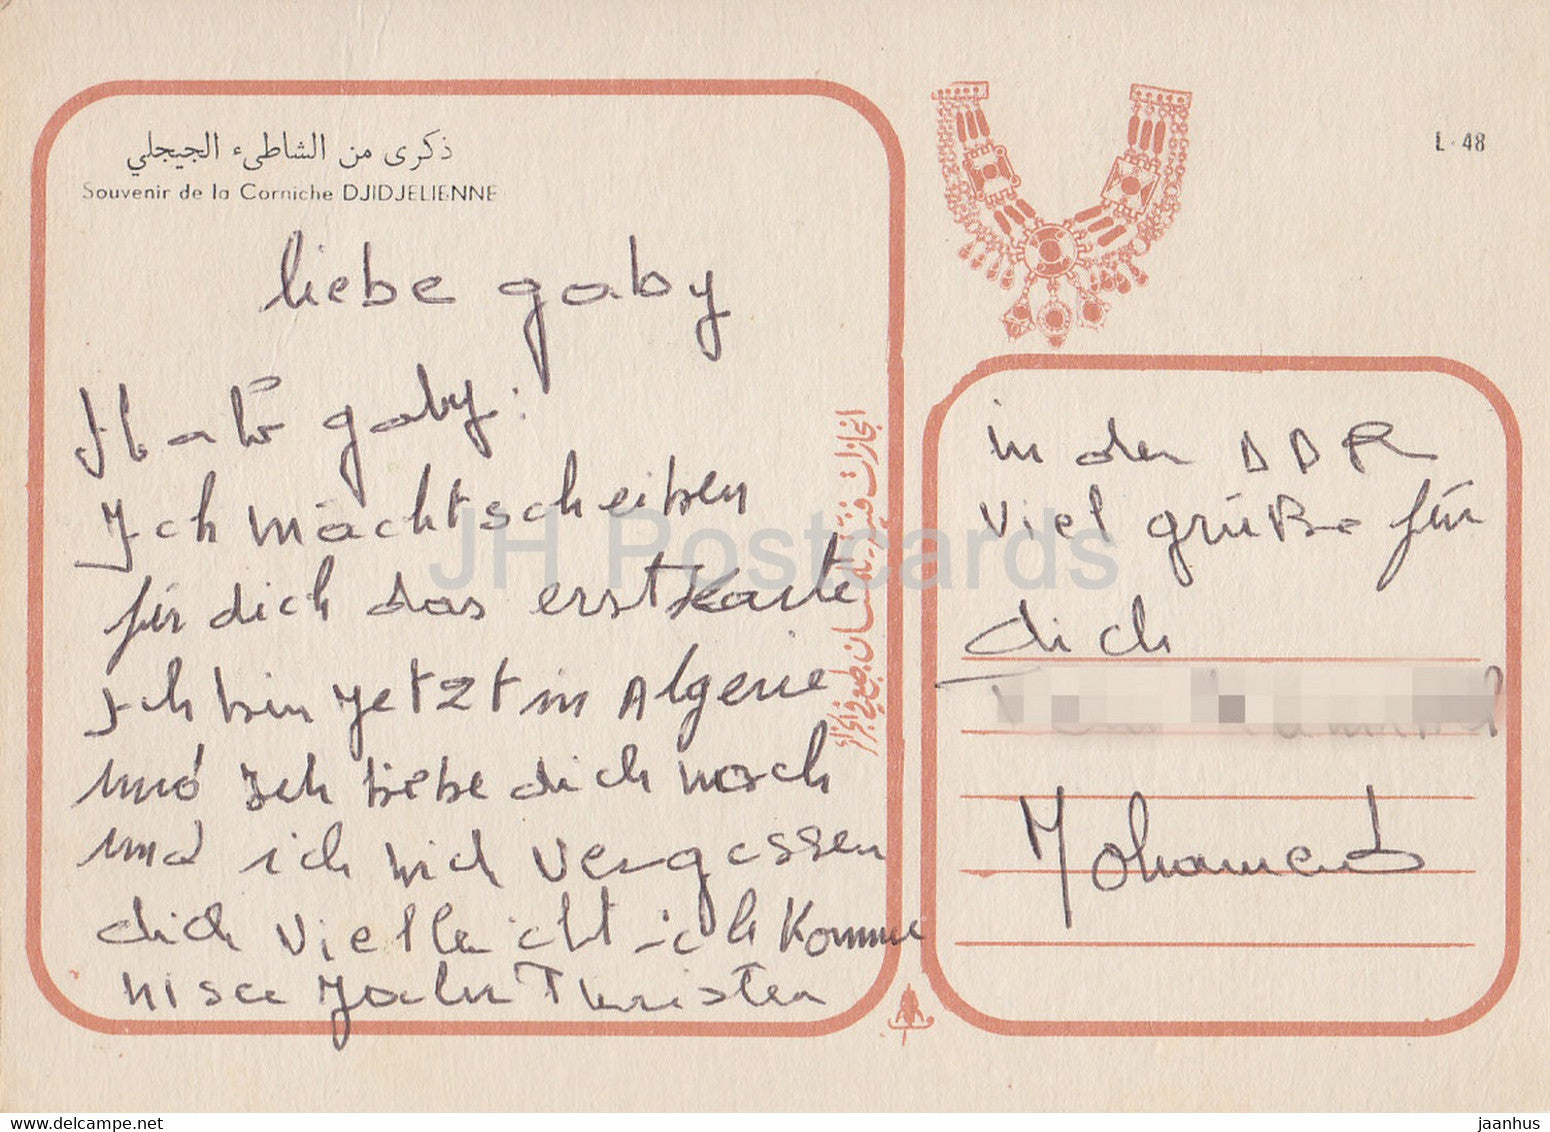 ذكرى من الشاطىء الجيجلي
Souvenir de la Corniche DJIDJELIENNE
L - 48
liebe gaby
gaby :
Ich mächtscheiben
für dich das erstkarte
Ich bin jetzt in Algerie
und Ich liebe dich noch
und ich wil vergessen
dich vielleicht ich komme
Turisten
in der DDR
viel grüße für
dich
Mohamed
JH Postcards
jaanhus